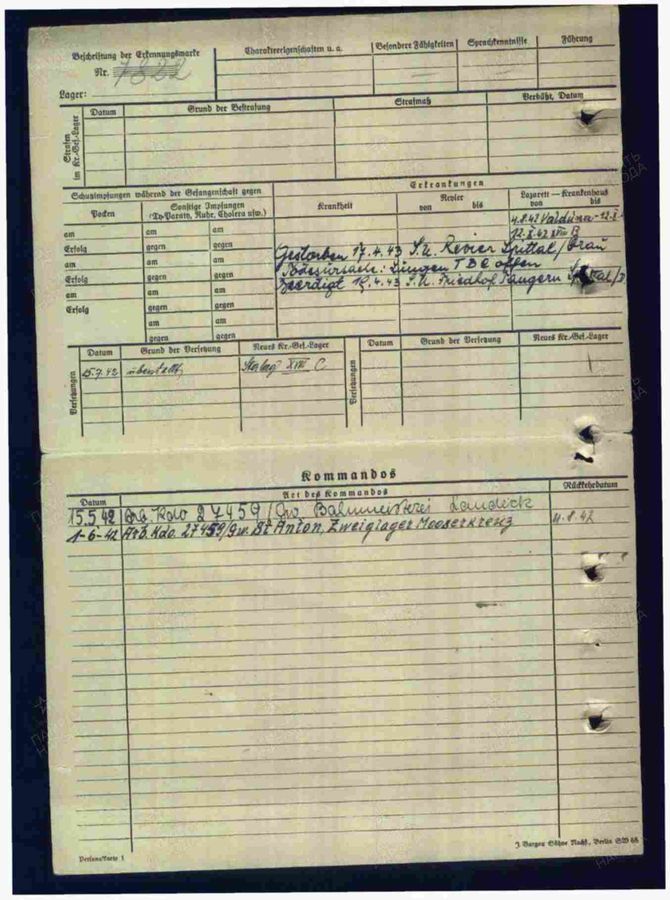 Beschriftung der Erkennungsmarke
Nr. 7822
Lager:
Charaktereigenschaften u. a.
Besondere Fähigkeiten
Sprachkenntnisse
Führung
Strafen im Kr.-Gef.-Lager
Datum
Grund der Bestrafung
Strafmaß
Verbüßt, Datum
Schutzimpfungen während der Gefangenschaft gegen
Erkrankungen
Pocken
Sonstige Impfungen
(Ty-Paraty, Ruhr, Cholera usw.)
Krankheit
Revier
von bis
Lazarett – Krankenhaus
von bis
4.8.42 Valduna -12.8.
12.8.42 XVIII B
am am am
Erfolg gegen gegen
am am am
Erfolg gegen gegen
am am am
Erfolg gegen gegen
am am
gegen gegen
Gestorben 17.4.43 Revier Spittal/Drau
Todesursache: Lungen TBC offen
Beerdigt 4.43 Friedhof
Versetzungen
Datum
Grund der Versetzung
Neues Kr.-Gef.-Lager
Versetzungen
Datum
Grund der Versetzung
Neues Kr.-Gef.-Lager
15.7.42 überstellt Stalag XVIII C
Kommandos
Datum
Art des Kommandos
Rückkehrdatum
15.5.42 Arb. Kdo 27459/Gw Bahnmeisterei Landeck
1-6-42 Arb. Kdo. 27459/Gw. St Anton, Zweiglager Mooserkreuz
11.8.42
Personalkarte 1
J. Bargou Söhne Nachf., Berlin SW 68